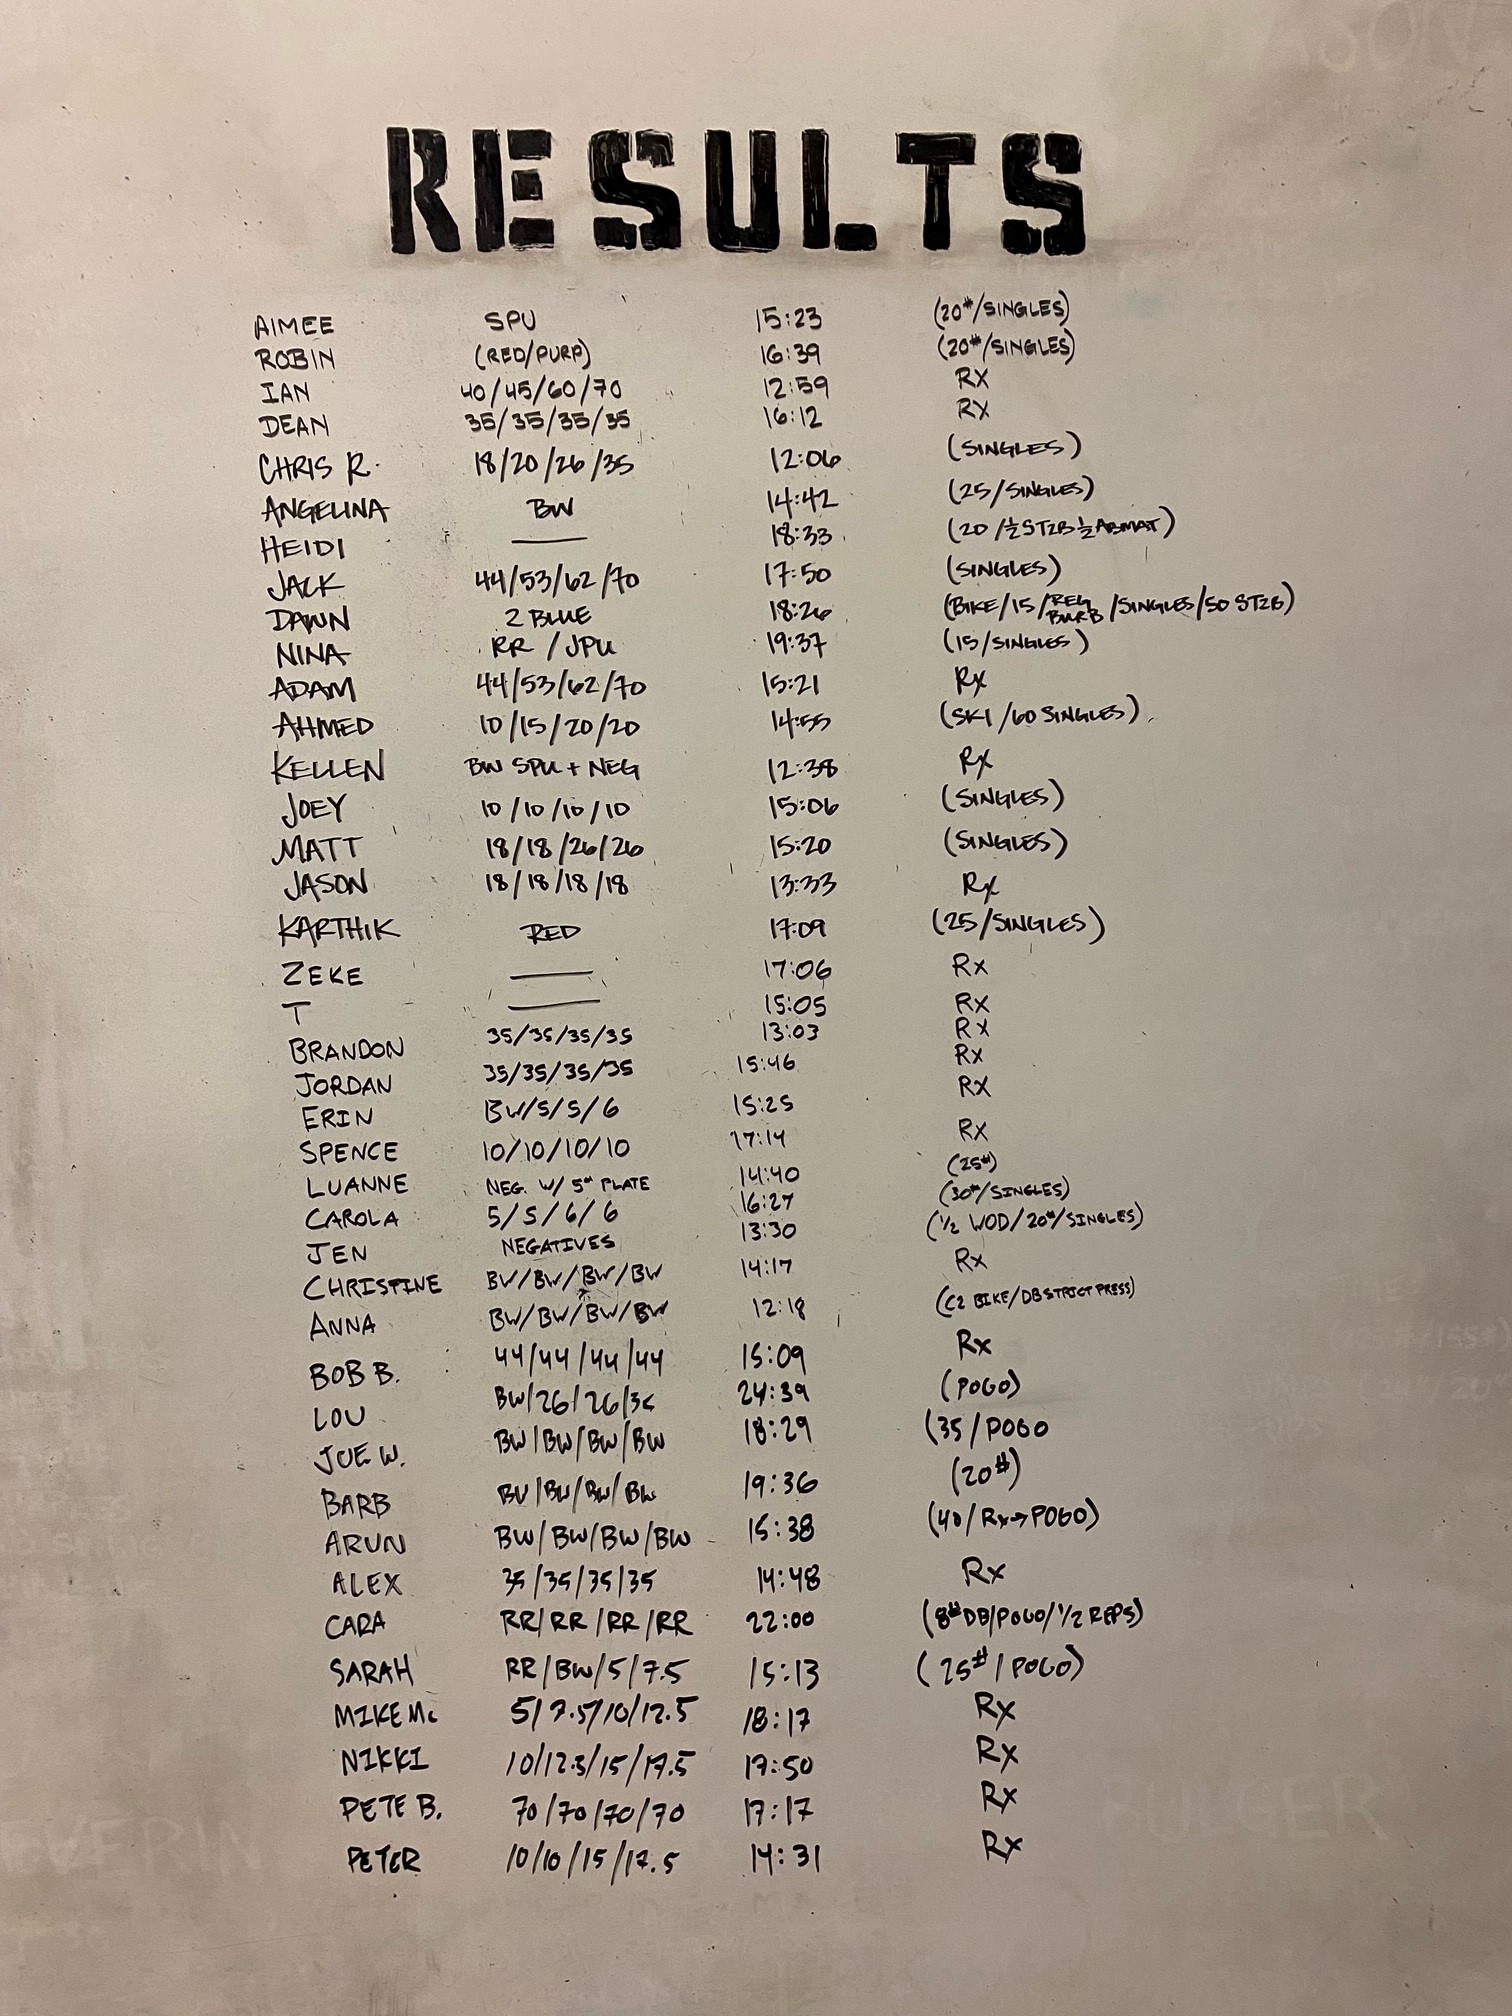 RESULTS
AIMEE SPU 15:23 (20#/SINGLES)
ROBIN (RED/PURP) 16:39 (20#/SINGLES)
IAN 40/45/60/70 12:59 RX
DEAN 35/35/35/35 16:12 RX
CHRIS R. 18/20/26/35 12:06 (SINGLES)
ANGELINA BW 14:42 (25/SINGLES)
HEIDI — 18:33 (20/½ST2B ½ABMAT)
JACK 44/53/62/70 17:50 (SINGLES)
DAWN 2 BLUE 18:26 (BIKE/15/REG BURB/SINGLES/50 ST2B)
NINA RR/JPU 19:37 (15/SINGLES)
ADAM 44/53/62/70 15:21 Rx
AHMED 10/15/20/20 14:55 (SKI/60 SINGLES)
KELLEN BW SPU + NEG 12:38 Rx
JOEY 10/10/10/10 15:06 (SINGLES)
MATT 18/18/26/26 15:20 (SINGLES)
JASON 18/18/18/18 13:33 Rx
KARTHIK RED 17:09 (25/SINGLES)
ZEKE — 17:06 Rx
T — 15:05 Rx
BRANDON 35/35/35/35 13:03 Rx
JORDAN 35/35/35/35 15:46 Rx
ERIN BW/5/5/6 15:25 Rx
SPENCE 10/10/10/10 17:14 Rx
LUANNE NEG. W/ 5# PLATE 14:40 (25#)
CAROLA 5/5/6/6 16:27 (30#/SINGLES)
JEN NEGATIVES 13:30 (1/2 WOD/20#/SINGLES)
CHRISTINE BW/BW/BW/BW 14:17 Rx
ANNA BW/BW/BW/BW 12:18 (C2 BIKE/DB STRICT PRESS)
BOB B. 44/44/44/44 15:09 Rx
LOU BW/26/26/35 24:39 (POGO)
JOE W. BW/BW/BW/BW 18:29 (35/POGO
BARB BW/BW/BW/BW 19:36 (20#)
ARUN BW/BW/BW/BW 15:38 (40/Rx→POGO)
ALEX 35/35/35/35 14:48 Rx
CARA RR/RR/RR/RR 22:00 (8#DB/POGO/1/2 REPS)
SARAH RR/BW/5/7.5 15:13 (25#/POGO)
MIKE Mc 5/7.5/10/12.5 18:17 Rx
NIKKI 10/12.5/15/17.5 17:50 Rx
PETE B. 70/70/70/70 17:17 Rx
PETER 10/10/15/17.5 14:31 Rx